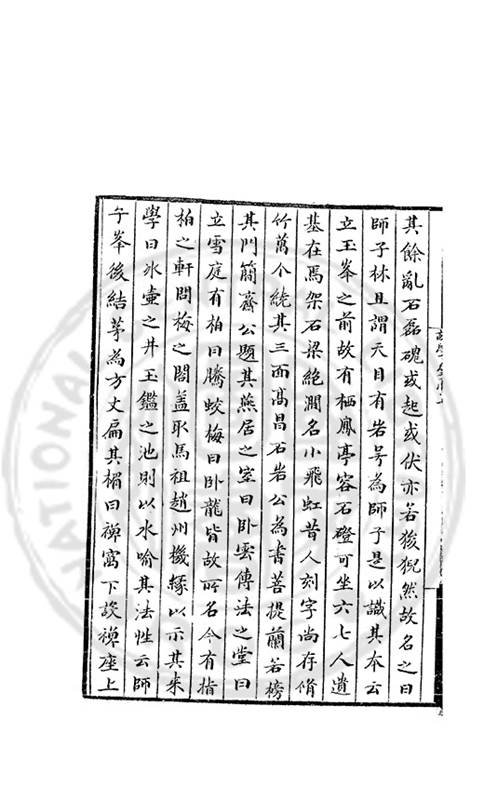 其餘亂石磊磈或起或伏亦若狻猊然故名之曰
師子林且謂天目有岩号為師子是以識其本云
立玉峯之前故有栖鳳亭容石磴可坐六七人遺
基在焉架石梁絶澗名小飛虹昔人刻字尚存脩
竹萬个繞其三面高昌石岩公為書菩提蘭若榜
其門簡齋公題其燕居之室曰卧雲傳法之堂曰
立雪庭有柏曰騰蛟梅曰卧龍皆故所名今有指
柏之軒問梅之閣盖取馬祖趙州機縁以示其来
學曰氷壷之井玉鑑之池則以水喻其法性云師
子峯後結茅為方丈扁其楣曰禅窩下設禅座上
NATIONAL